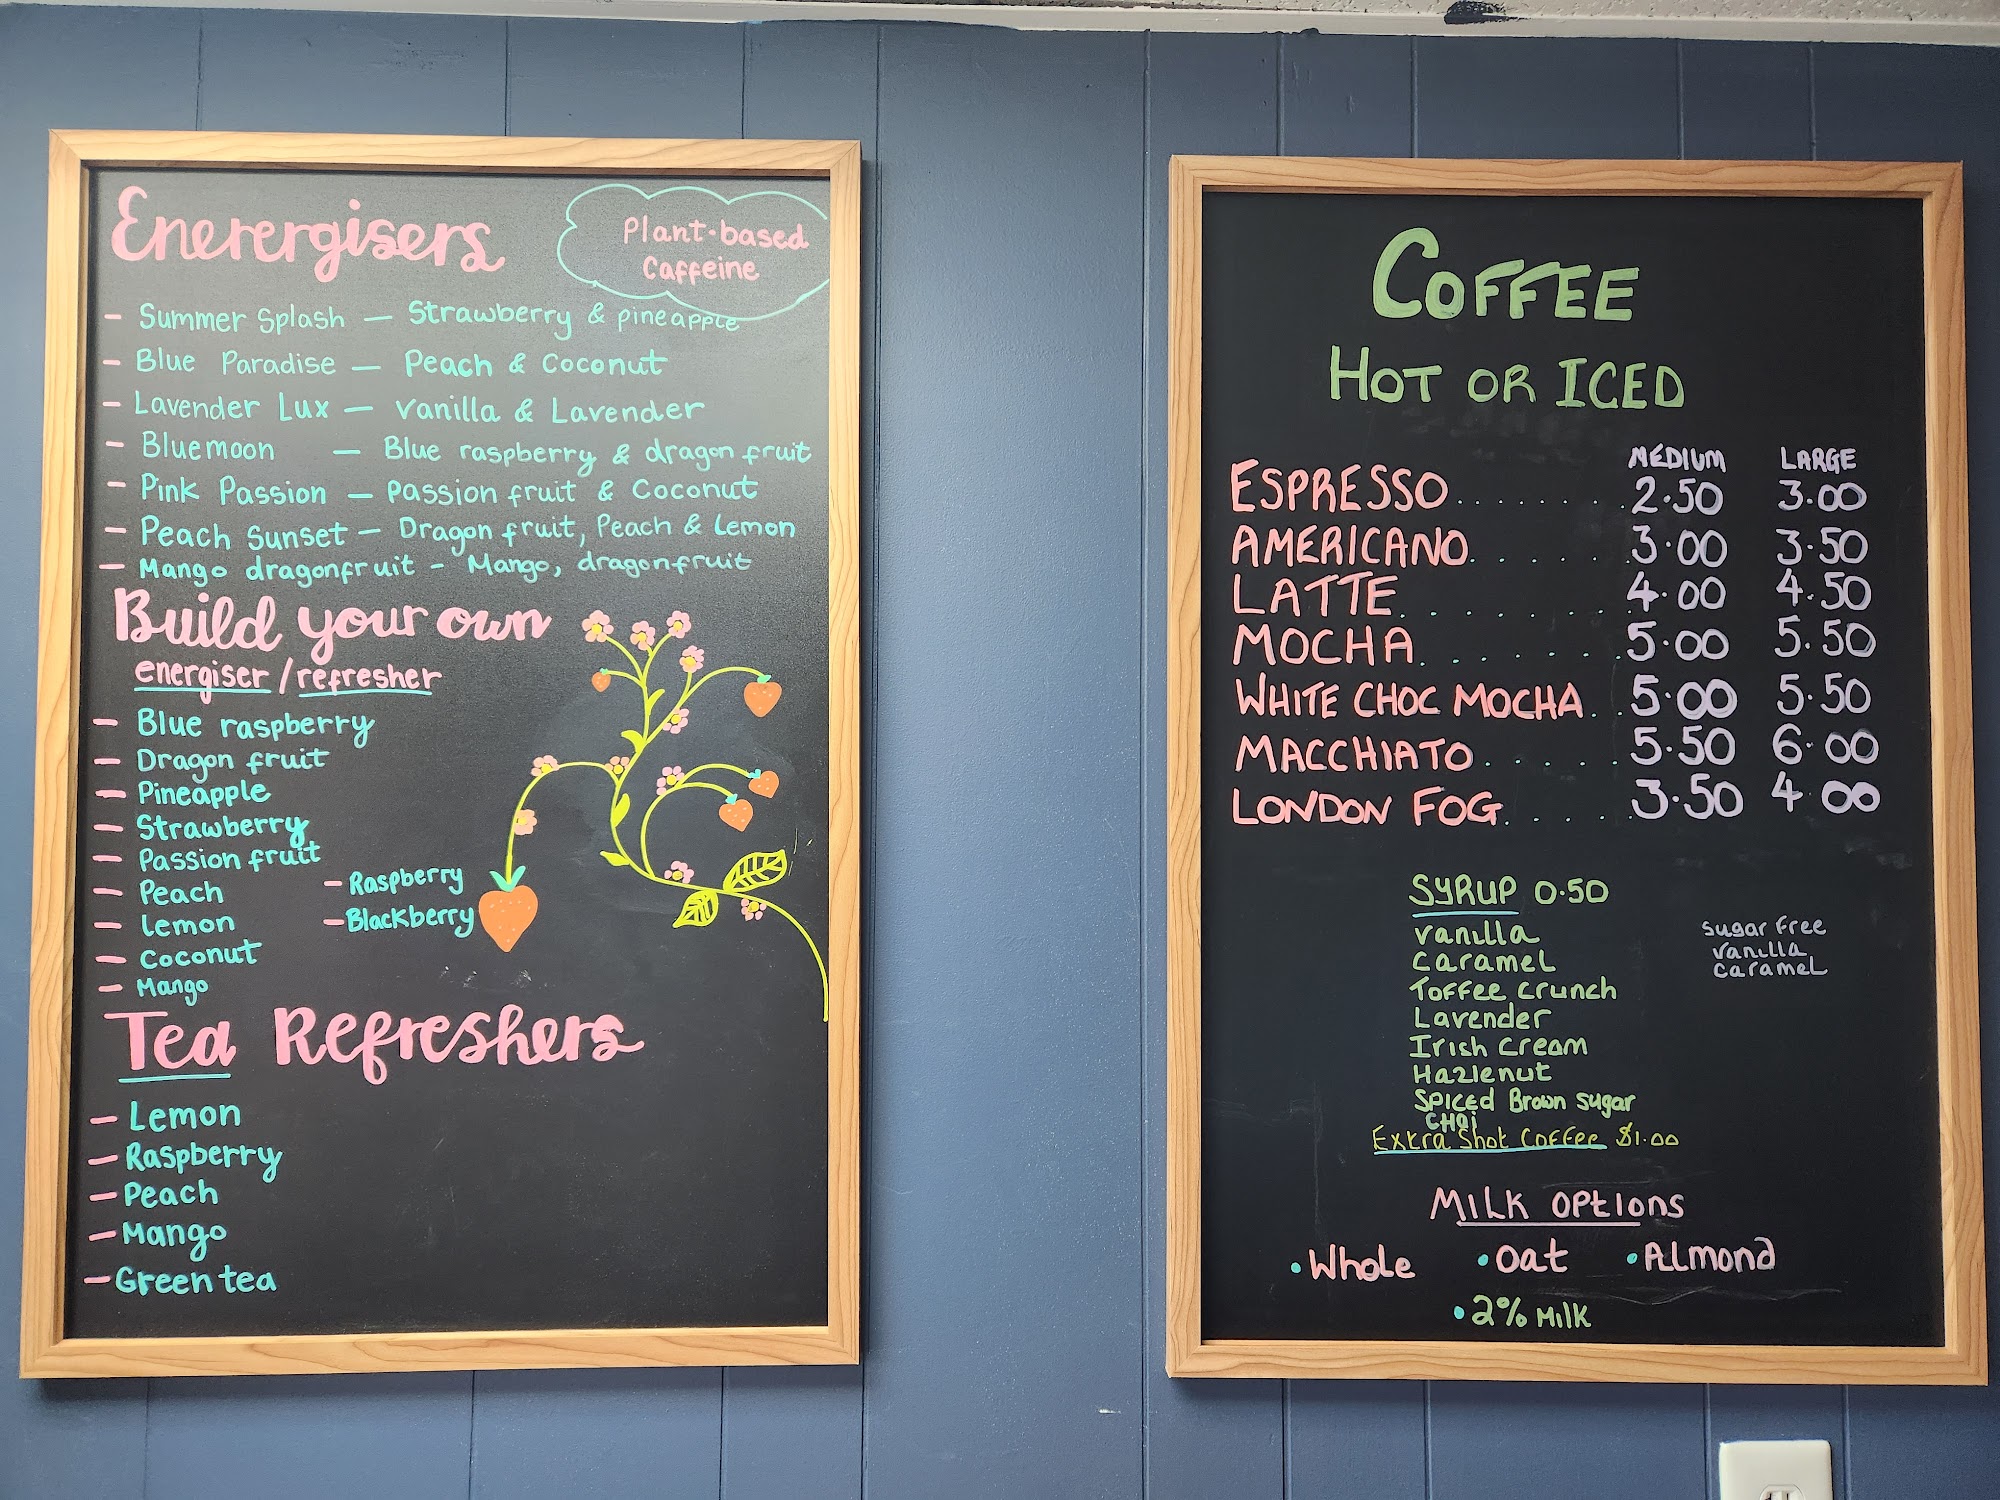 Enerergisers
Plant-based
Caffeine
- Summer Splash — Strawberry & pineapple
- Blue Paradise — Peach & Coconut
- Lavender Lux — vanilla & Lavender
- Bluemoon — Blue raspberry & dragon fruit
- Pink Passion — passion fruit & Coconut
- Peach Sunset — Dragon fruit, Peach & Lemon
- Mango dragonfruit - Mango, dragonfruit
Build your own
energiser / refresher
- Blue raspberry
- Dragon fruit
- Pineapple
- Strawberry
- Passion fruit
- Peach
- Lemon
- Coconut
- Mango
- Raspberry
- Blackberry
Tea Refreshers
- Lemon
- Raspberry
- Peach
- Mango
- Green tea
COFFEE
HOT OR ICED
MEDIUM LARGE
ESPRESSO....... 2.50 3.00
AMERICANO...... 3.00 3.50
LATTE....... 4.00 4.50
MOCHA....... 5.00 5.50
WHITE CHOC MOCHA. 5.00 5.50
MACCHIATO..... 5.50 6.00
LONDON FOG..... 3.50 4.00
SYRUP 0.50
vanilla
caramel
Toffee crunch
Lavender
Irish cream
Hazlenut
SPICED Brown sugar
CHai
sugar free
vanilla
caramel
Extra Shot Coffee $1.00
MILK OPtIONS
• Whole • Oat • ALmond
• 2% MILK